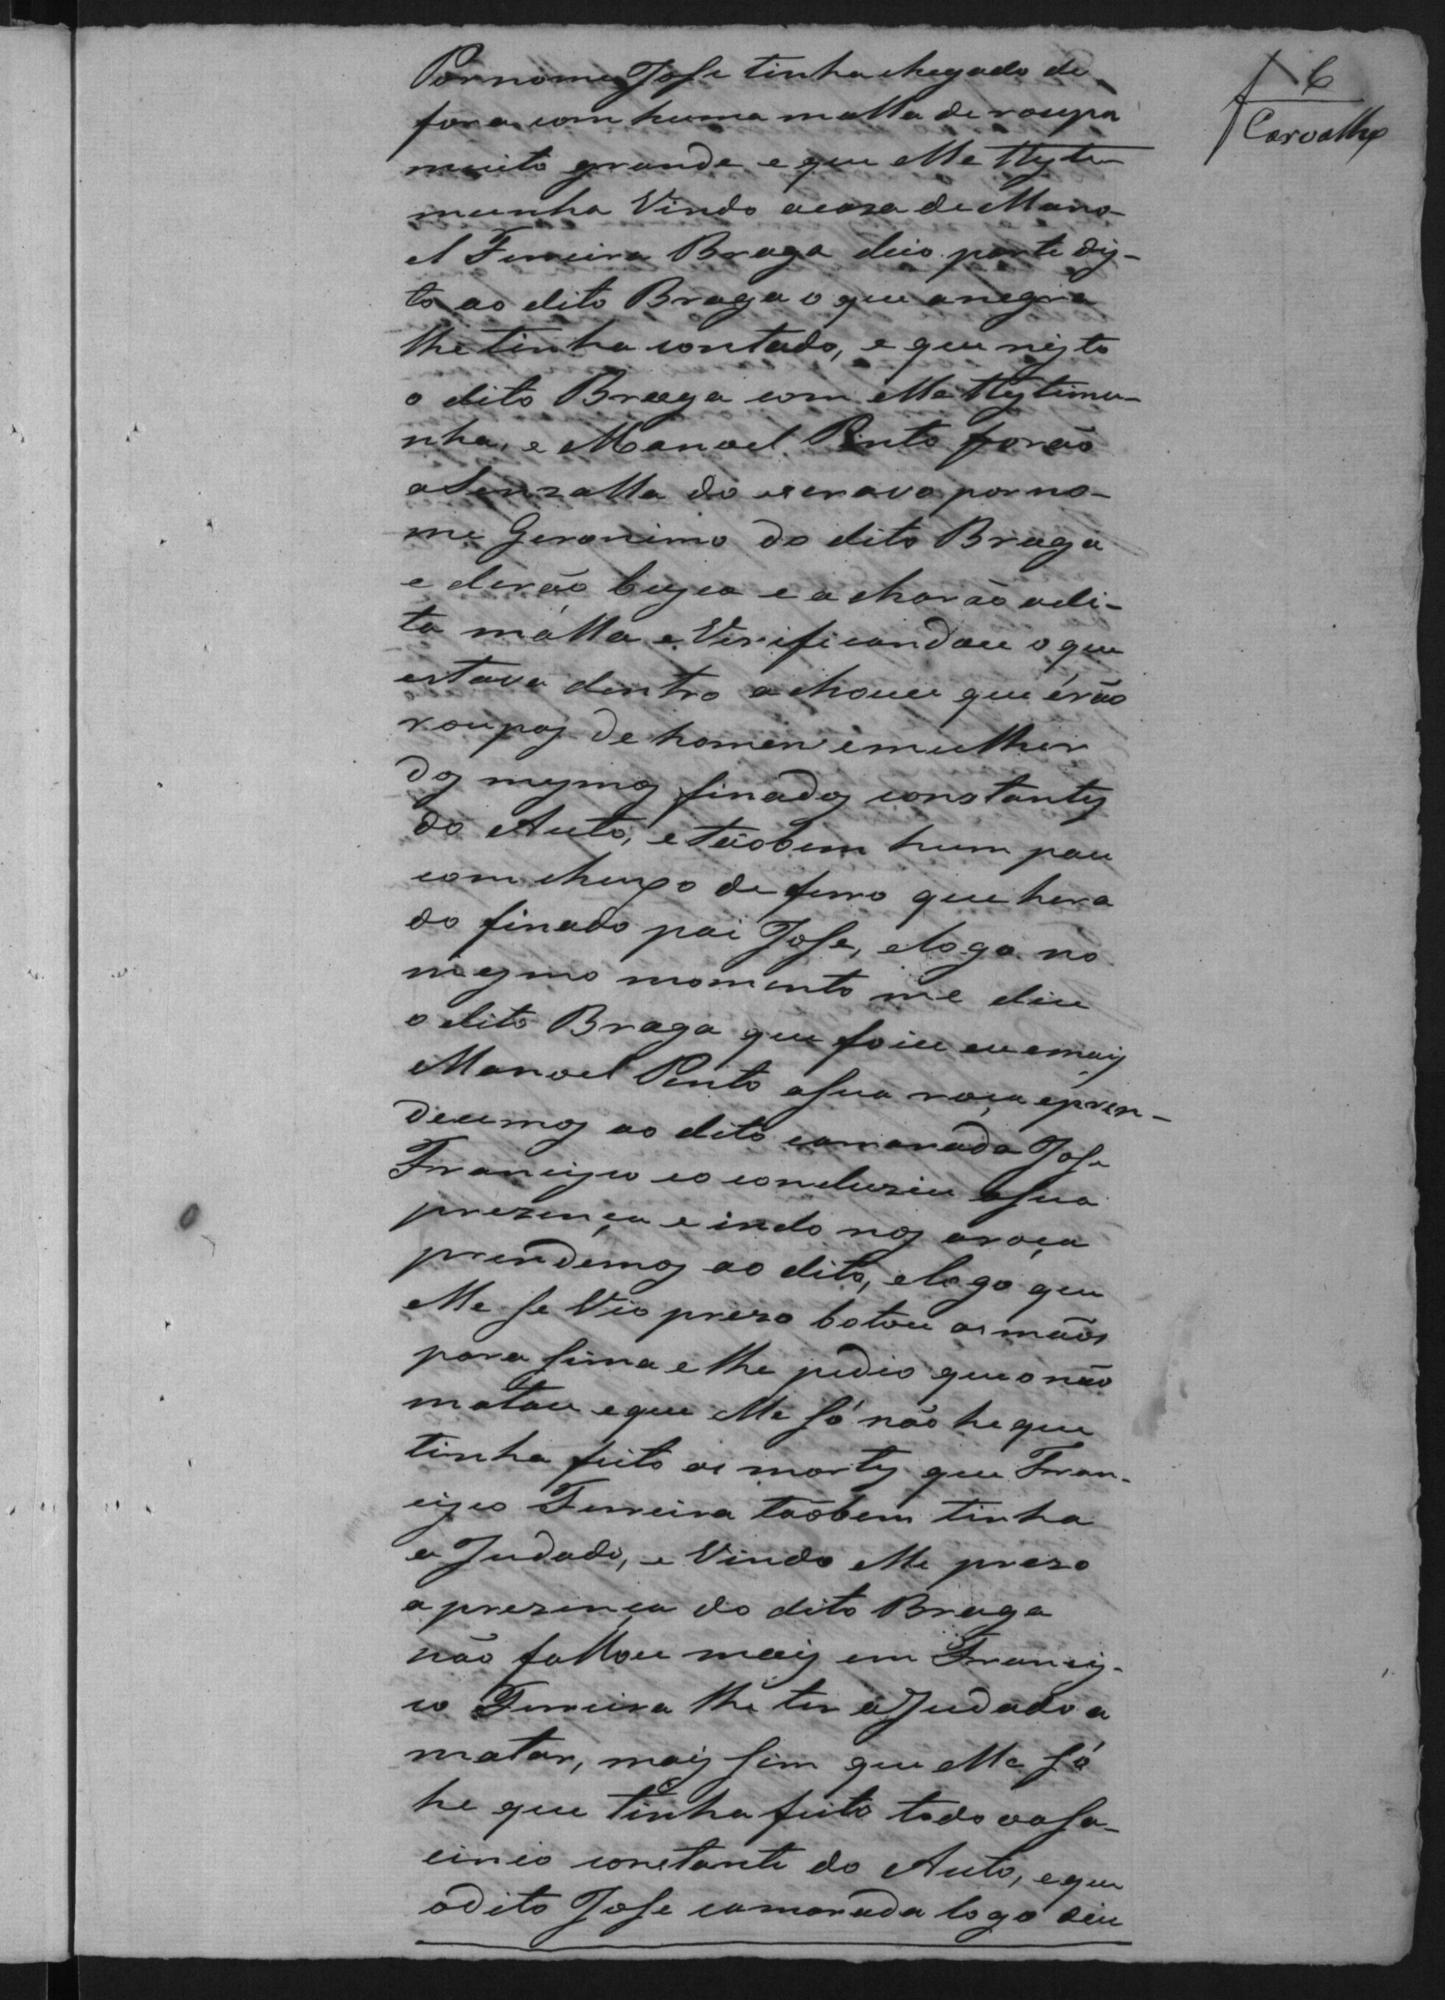 6
Carvalho
Por nome Jose tinha chegado de
fora com huma malla de roupa
muito grande e que elle tteste-
munha Vindo a caza de Mano-
el Ferreira Braga deio parte dis-
to ao dito Braga o que a negra
lhe tinha contado, e que nisto
o dito Braga com elle ttestemu-
nha, e Manoel Pinto forão
a Senzalla do escravo por no-
me Geronimo do dito Braga
e derão busca e a charão a di-
ta malla e Verificandou o que
estava dentro a chouu que érão
roupas de homem e mulher
dos mesmos finados constantes
do Auto, e tãobem hum pau
com chuço de ferro que hera
do finado pai Jose, e logo no
mesmo momento me diu
o dito Braga que foiu eu e mais
Manoel Pinto a Sua roça e pren-
deumos ao dito camarada Jose
Francisco eo conduziu a Sua
prezença e indo nos a roça
prendemos ao dito, e logo que
elle Se Vio prezo botou as mãos
para Sima e lhe pedio que o não
matau e que elle Só não he que
tinha feito as mortes que Fran-
cisco Ferreira tãobem tinha
a Judado, e Vindo elle prezo
a prezença do dito Braga
não fallou mais em Francis-
co Ferreira lhe ter a Judado a
matar, mais Sim que elle Só
he que tinha feito todo o aSa-
cinio constante do Auto, e que
o dito Jose camarada logo deu